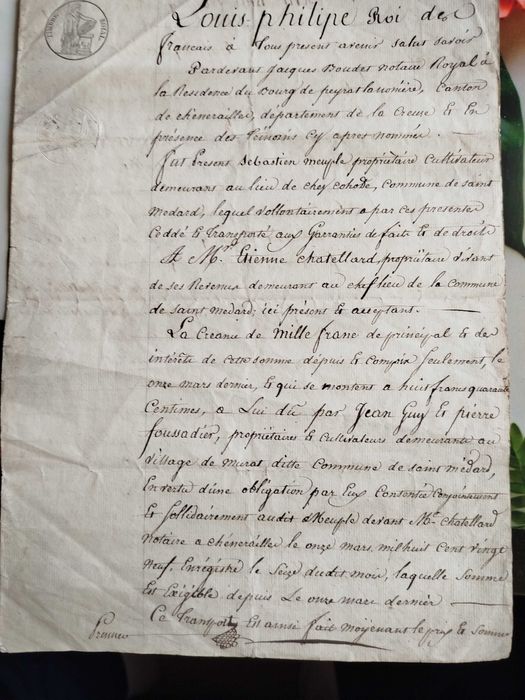 Louis-philipe Roi des
francais à tous present avenir salut savoir
Pardevant Jacques Boudet notaire Royal à
la Residence du Bourg de peyratlanonière, Canton
de chénérailles, département de la Creuse Et En
présence des Témoins Cy après nommés.
fut Present Sébastien meuple propriétaire Cultivateur
demeurant au lieu de chez cohode, Commune de saint
medard, lequel vollontairement a par ces presentes
Ceddé Et Transporté aux Garranties de faits Et de droit
A Mr. Etienne chatellard, propriétaire vivant
de ses Revenus demeurant au cheflieu de la Commune
de saint medard; ici présent Et acceptant.
La Creance de mille franc de principal Et des
intérêts de cette somme depuis Et Compris seulement, le
onze mars dernier, Et qui se montent a huit francs quarante
Centimes, a Lui dû par Jean Guy Et pierre
foussadier, propriétaires Et Cultivateurs demeurants au
village de murat ditte Commune de saint médard,
En vertu d'une obligation par Eux Consentie Conjointement
Et sollidairement audit Meuple devant Me. Chatellard
notaire a chénérailles le onze mars, mil huit Cent vingt
neuf, Enrégistré le Seize dudit mois, laquelle Somme
Est Exigible depuis Le onze mars dernier
Ce Transport Est ainsi fait moyenant le prix Et Somme